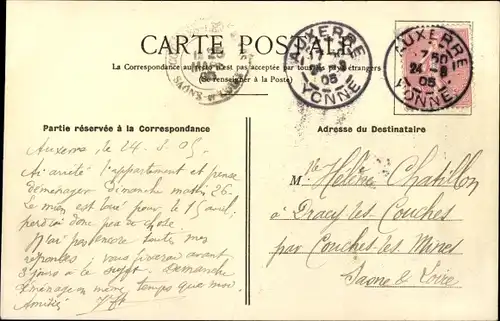 CARTE POSTALE
La Correspondance au recto n'est pas acceptée par tous les pays étrangers
(Se renseigner à la Poste)
AUXERRE
7 50
24 -3
05
YONNE
AUXERRE
7 50
24 -3
05
YONNE
SAÔNE-&-LOIRE
Partie réservée à la Correspondance
Adresse du Destinataire
Auxerre, le 24. 3 05.
Ai arrêté l'appartement et pense
déménager Dimanche matin 26.
Le mien est loué pour le 15 avril,
perdrai donc peu de chose.
N'ai pas encore toutes mes
réponses, vous écrirai avant
3 jours à ce sujet. Demanche
déménage en même temps que moi.
Amitiés
Mlle Hélène Chatillon
à Dracy les Couches
par Couches les Mines
Saone & Loire